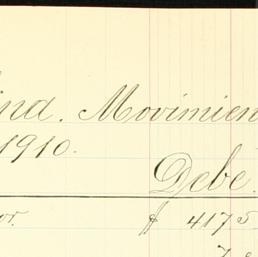 ind. Movimien
1910.
Debe.
or. $ 4175